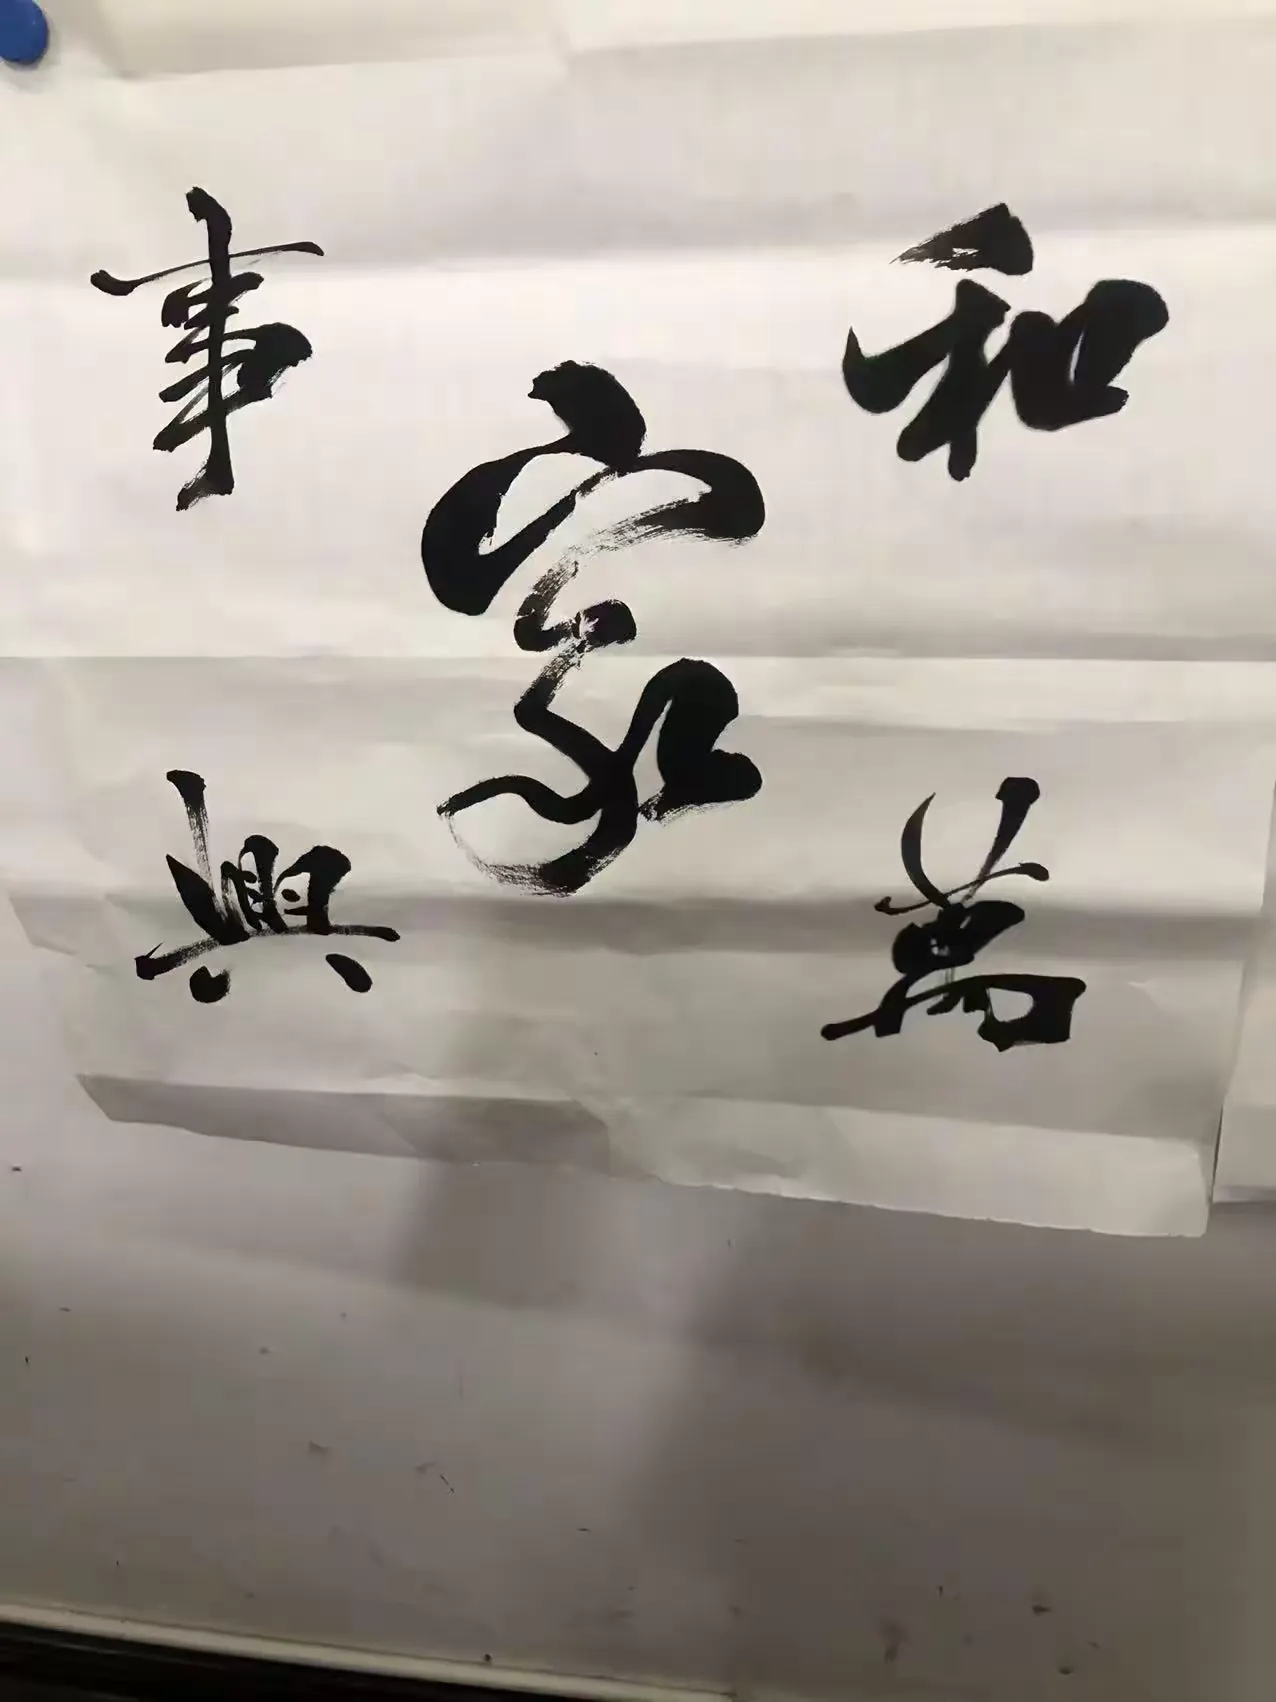 家
和萬
事興